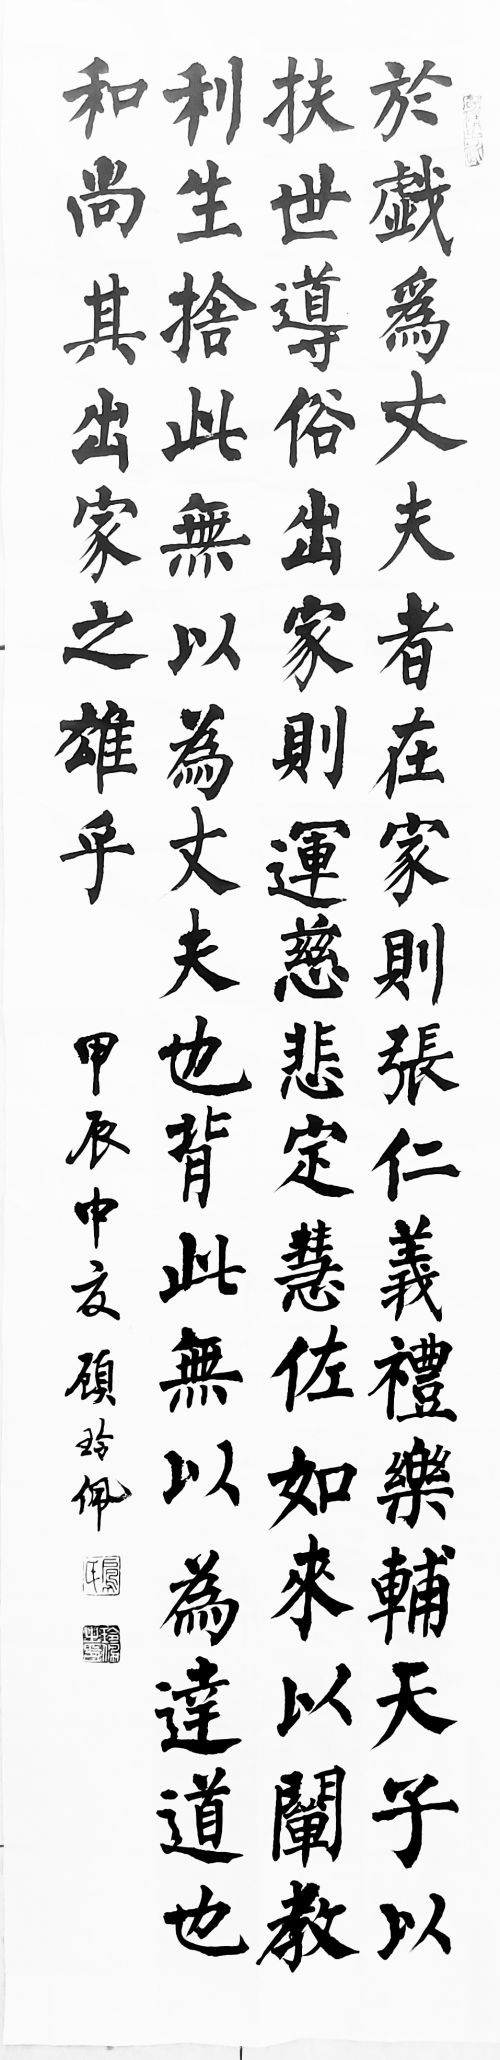 於戲為丈夫者在家則張仁義禮樂輔天子以
扶世導俗出家則運慈悲定慧佐如來以闡教
利生捨此無以為丈夫也背此無以為達道也
和尚其出家之雄乎
甲辰中夏顧玲佩